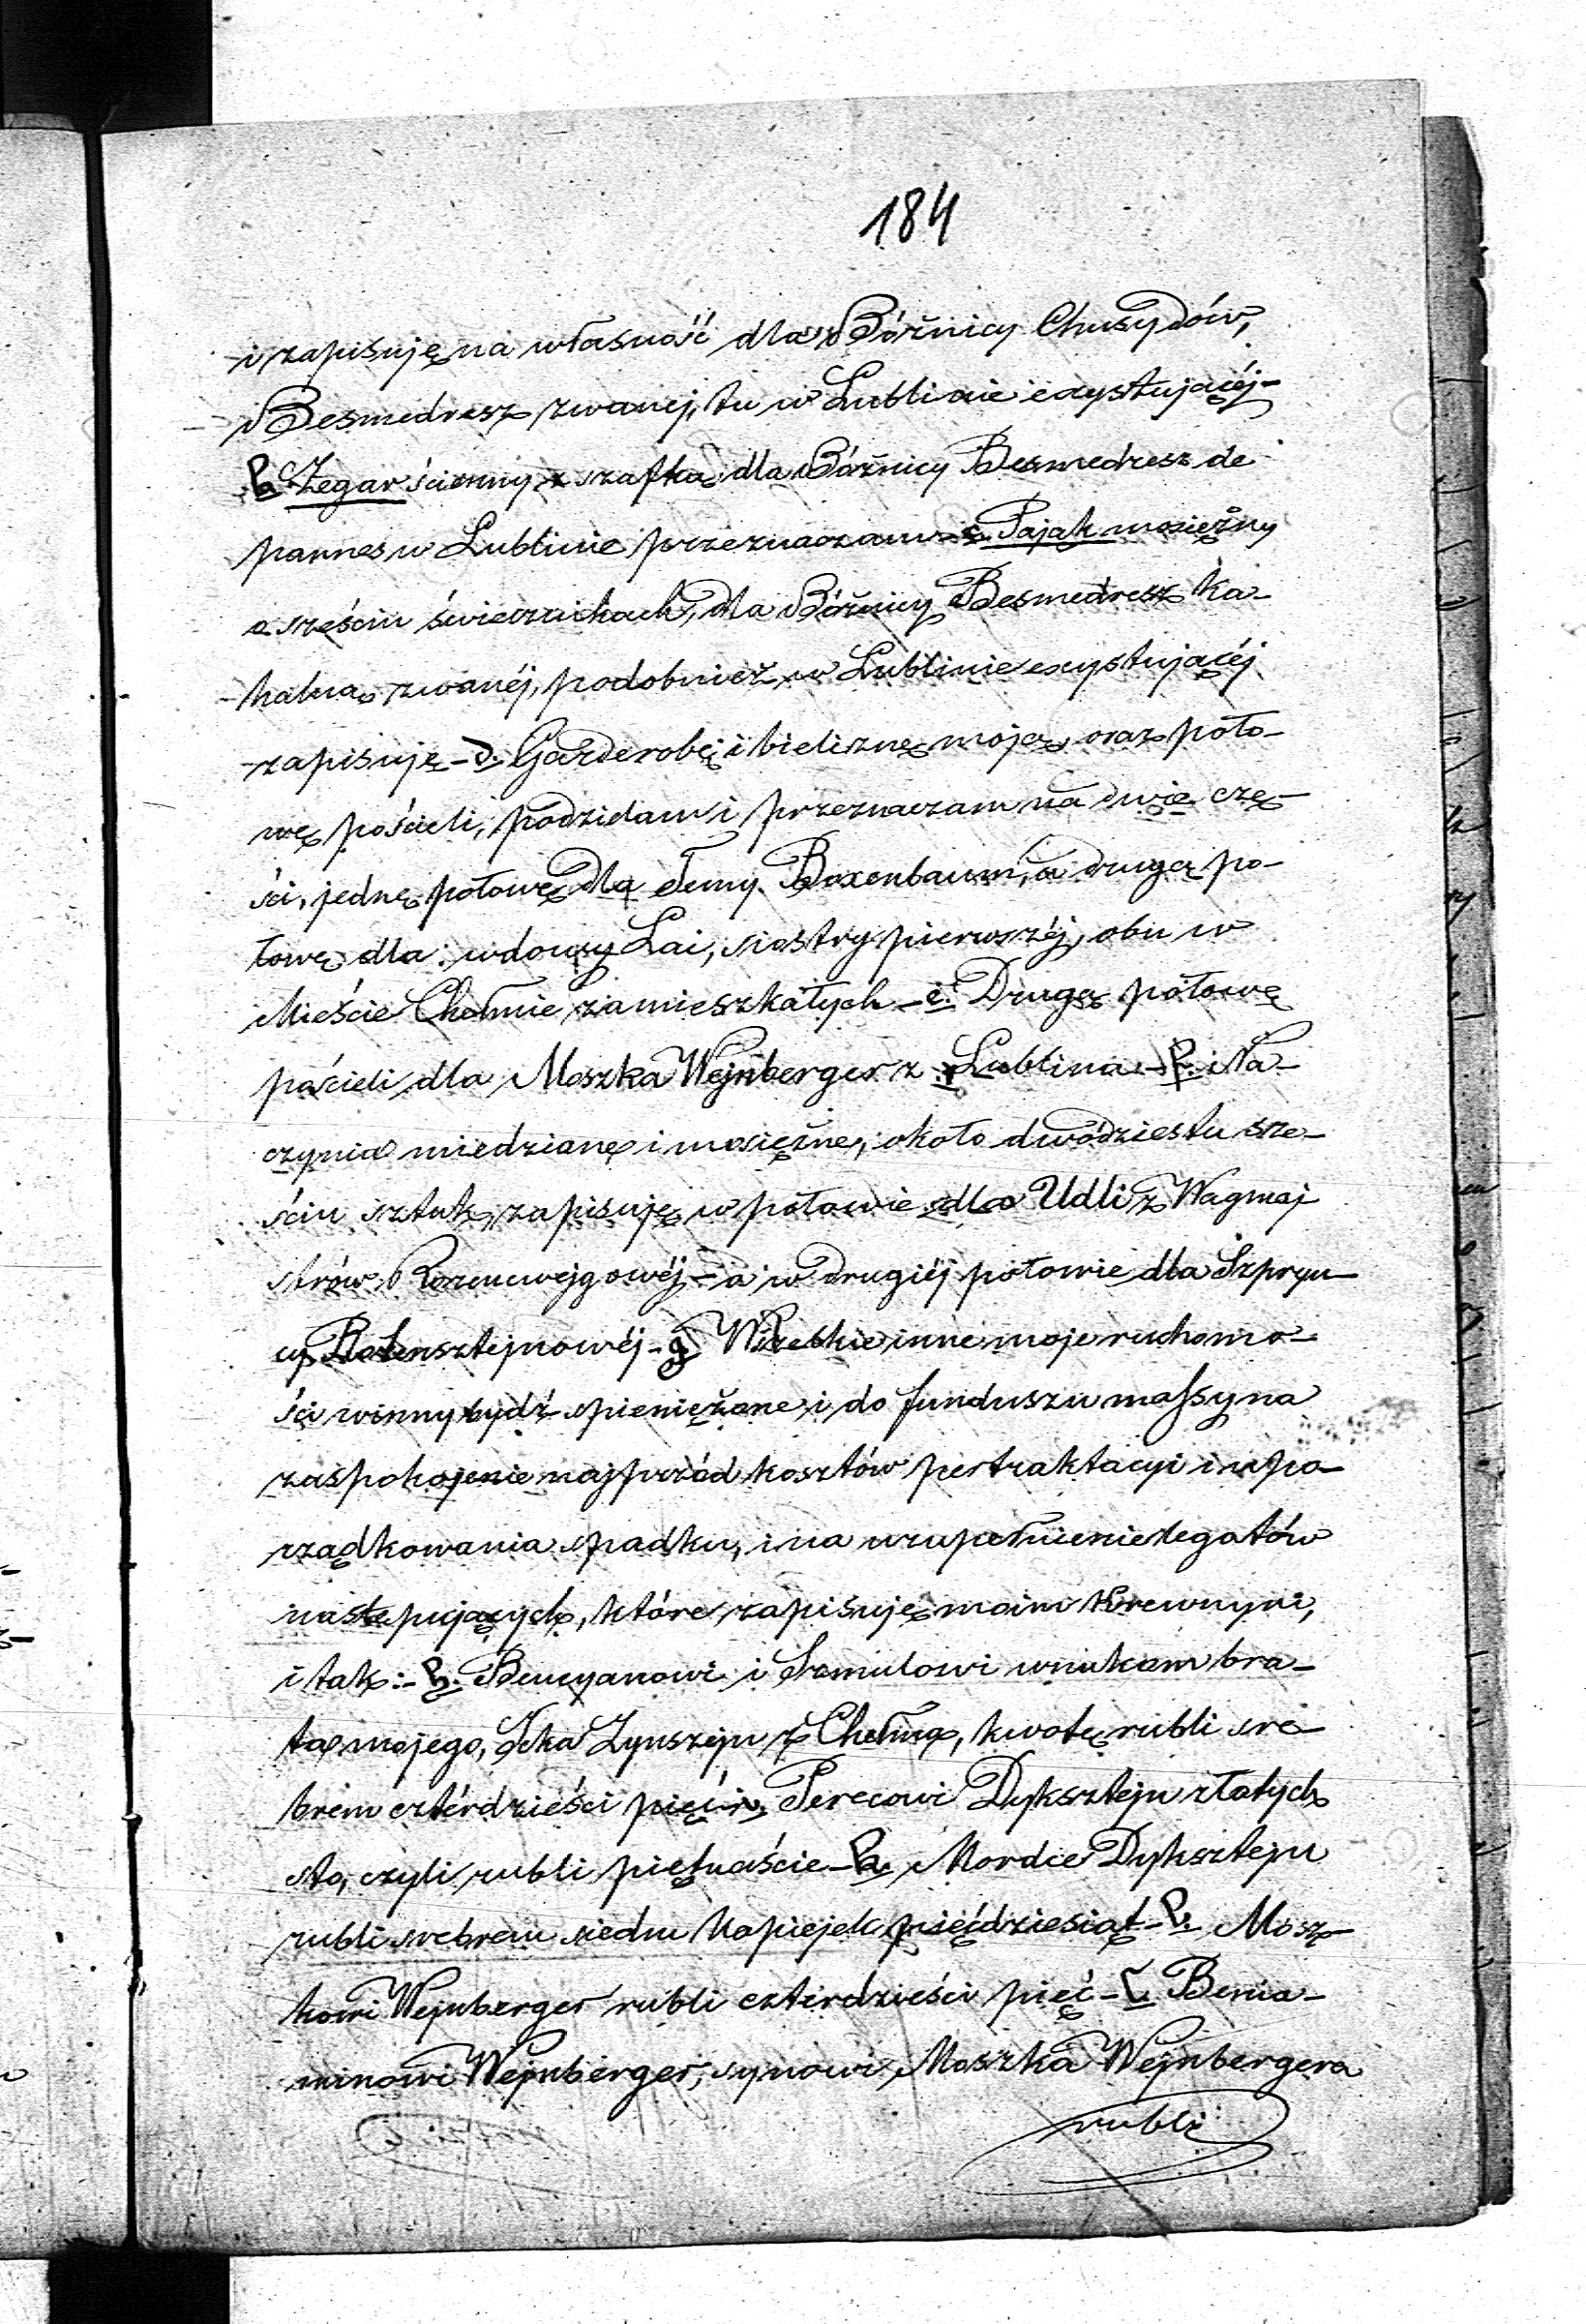 184
i zapisuję na własność dla Bóżnicy Chusydów,
Besmedresz zwanej, tu w Lublinie exystującéj-
b. Zegar ścienny z szafką dla Bóżnicy Besmedresz de
pannes w Lublinie przeznaczam - c. Pająk mosiężny
o sześciu świecznikach, dla Bóżnicy Besmedresz ka-
halną zwanéj, podobnież w Lublinie exystującéj
zapisuję - d. Garderobę i bieliznę moją, oraz poło-
wę pościeli, podzielam i przeznaczam na dwie czę-
ści, jednę połowę dla Temy Boxenbaum, a drugą po-
łowę dla wdowy Lai, siostry pierwszéj, obu w
Mieście Chełmie zamieszkałych - e. Drugą połowę
pościeli dla Moszka Wejnberger z Lublina - f. Na-
czynia miedziane i mosiężne, około dwódziestu sze-
ściu sztuk, zapisuję w połowie dla Udli z Wagmaj
strów Rozencwejgowéj - a w drugiéj połowie dla Szpryn-
cy Rotensztejnowéj - g. Wszelkie inne moje ruchomo-
ści winny bydź spieniężone i do funduszu massy na
zaspokojenie najprzód kosztów pertraktacyi i upo-
rządkowania spadku, i na uzupełnienie legatów
następujących, które zapisuję moim krewnym,
i tak: - h. Bencyanowi i Szmulowi wnukom bra-
ta mojego, Icka Zynszejn z Chełma, kwotę rubli sre-
brem czterdzieści pięć - i. Perecowi Dyksztejn złotych
sto, czyli rubli piętnaście - k. Mordce Dyksztejn
rubli srebrem siedm kopiejek pięćdziesiąt - l. Mosz-
kowi Wejnberger rubli czterdzieści pięć - ł. Benia-
minowi Wejnberger, synowi Moszka Wejnbergera
rubli